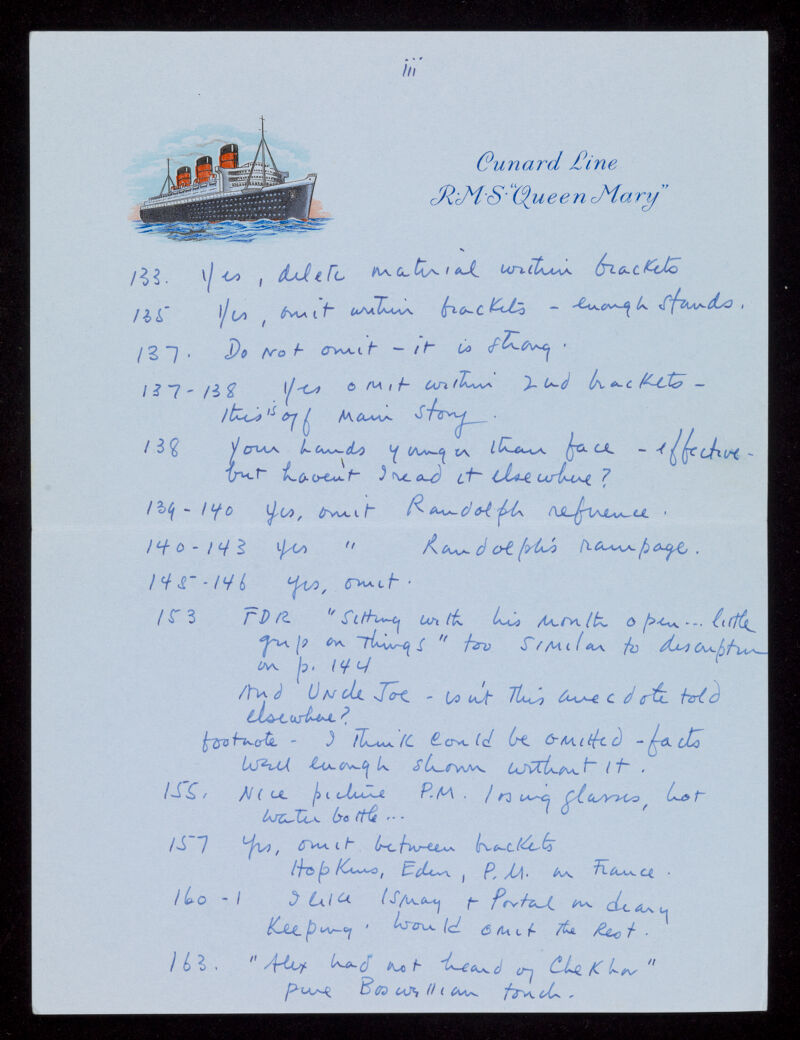 iii
Cunard Line
R.M.S. "Queen Mary"
133. Yes, delete material within brackets
135 Yes, omit within brackets - enough stands.
137. Do not omit - it is strong.
137-138 Yes omit within 2nd brackets -
this is off main story.
138 Your hands younger than face - effective -
but haven't I read it elsewhere?
139-140 Yes, omit Randolph reference.
140-143 Yes " Randolph's rampage.
145-146 Yes, omit.
153 FDR "Sitting with his mouth open... little
grip on things" too similar to description
on p. 144
And Uncle Joe - isn't this anecdote told
elsewhere?
footnote - I think could be omitted - facts
well enough shown without it.
155. Nice picture P.M. losing glasses, hot
water bottle...
157 Yes, omit between brackets
Hopkins, Eden, P.M. on France.
160-1 I like Ismay + Portal on diary
keeping. Would omit the rest.
163. "Alex had not heard of Chekhov"
pure Boswellian touch.